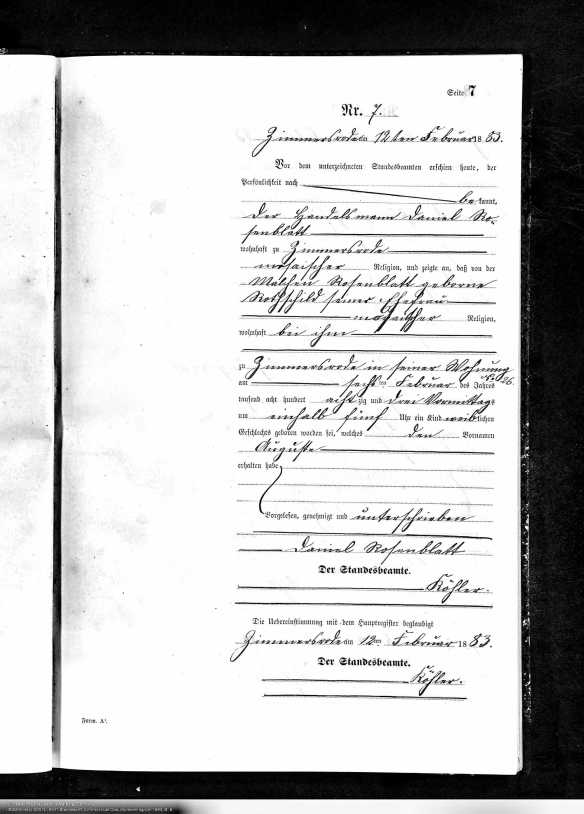 Seite 7
Nr. 7.
Zimmersrode am 12ten Februar 1883.
Vor dem unterzeichneten Standesbeamten erschien heute, der
Persönlichkeit nach
bekannt,
der Handelsmann Daniel Ro-
senblatt
wohnhaft zu Zimmersrode
mosaischer Religion, und zeigte an, daß von der
Malchen Rosenblatt geborne
Rothschild seiner Ehefrau
mosaischer Religion,
wohnhaft bei ihm
zu Zimmersrode in seiner Wohnung
No 26.
am sechsten Februar des Jahres
tausend acht hundert achtzig und drei Vormittags
um einhalb fünf Uhr ein Kind weiblichen
Geschlechts geboren worden sei, welches den Vornamen
Auguste
erhalten habe
Vorgelesen, genehmigt und unterschrieben
Daniel Rosenblatt
Der Standesbeamte.
Köhler.
Die Uebereinstimmung mit dem Hauptregister beglaubigt
Zimmersrode am 12ten Februar 1883.
Der Standesbeamte.
Köhler.
Form. A¹.